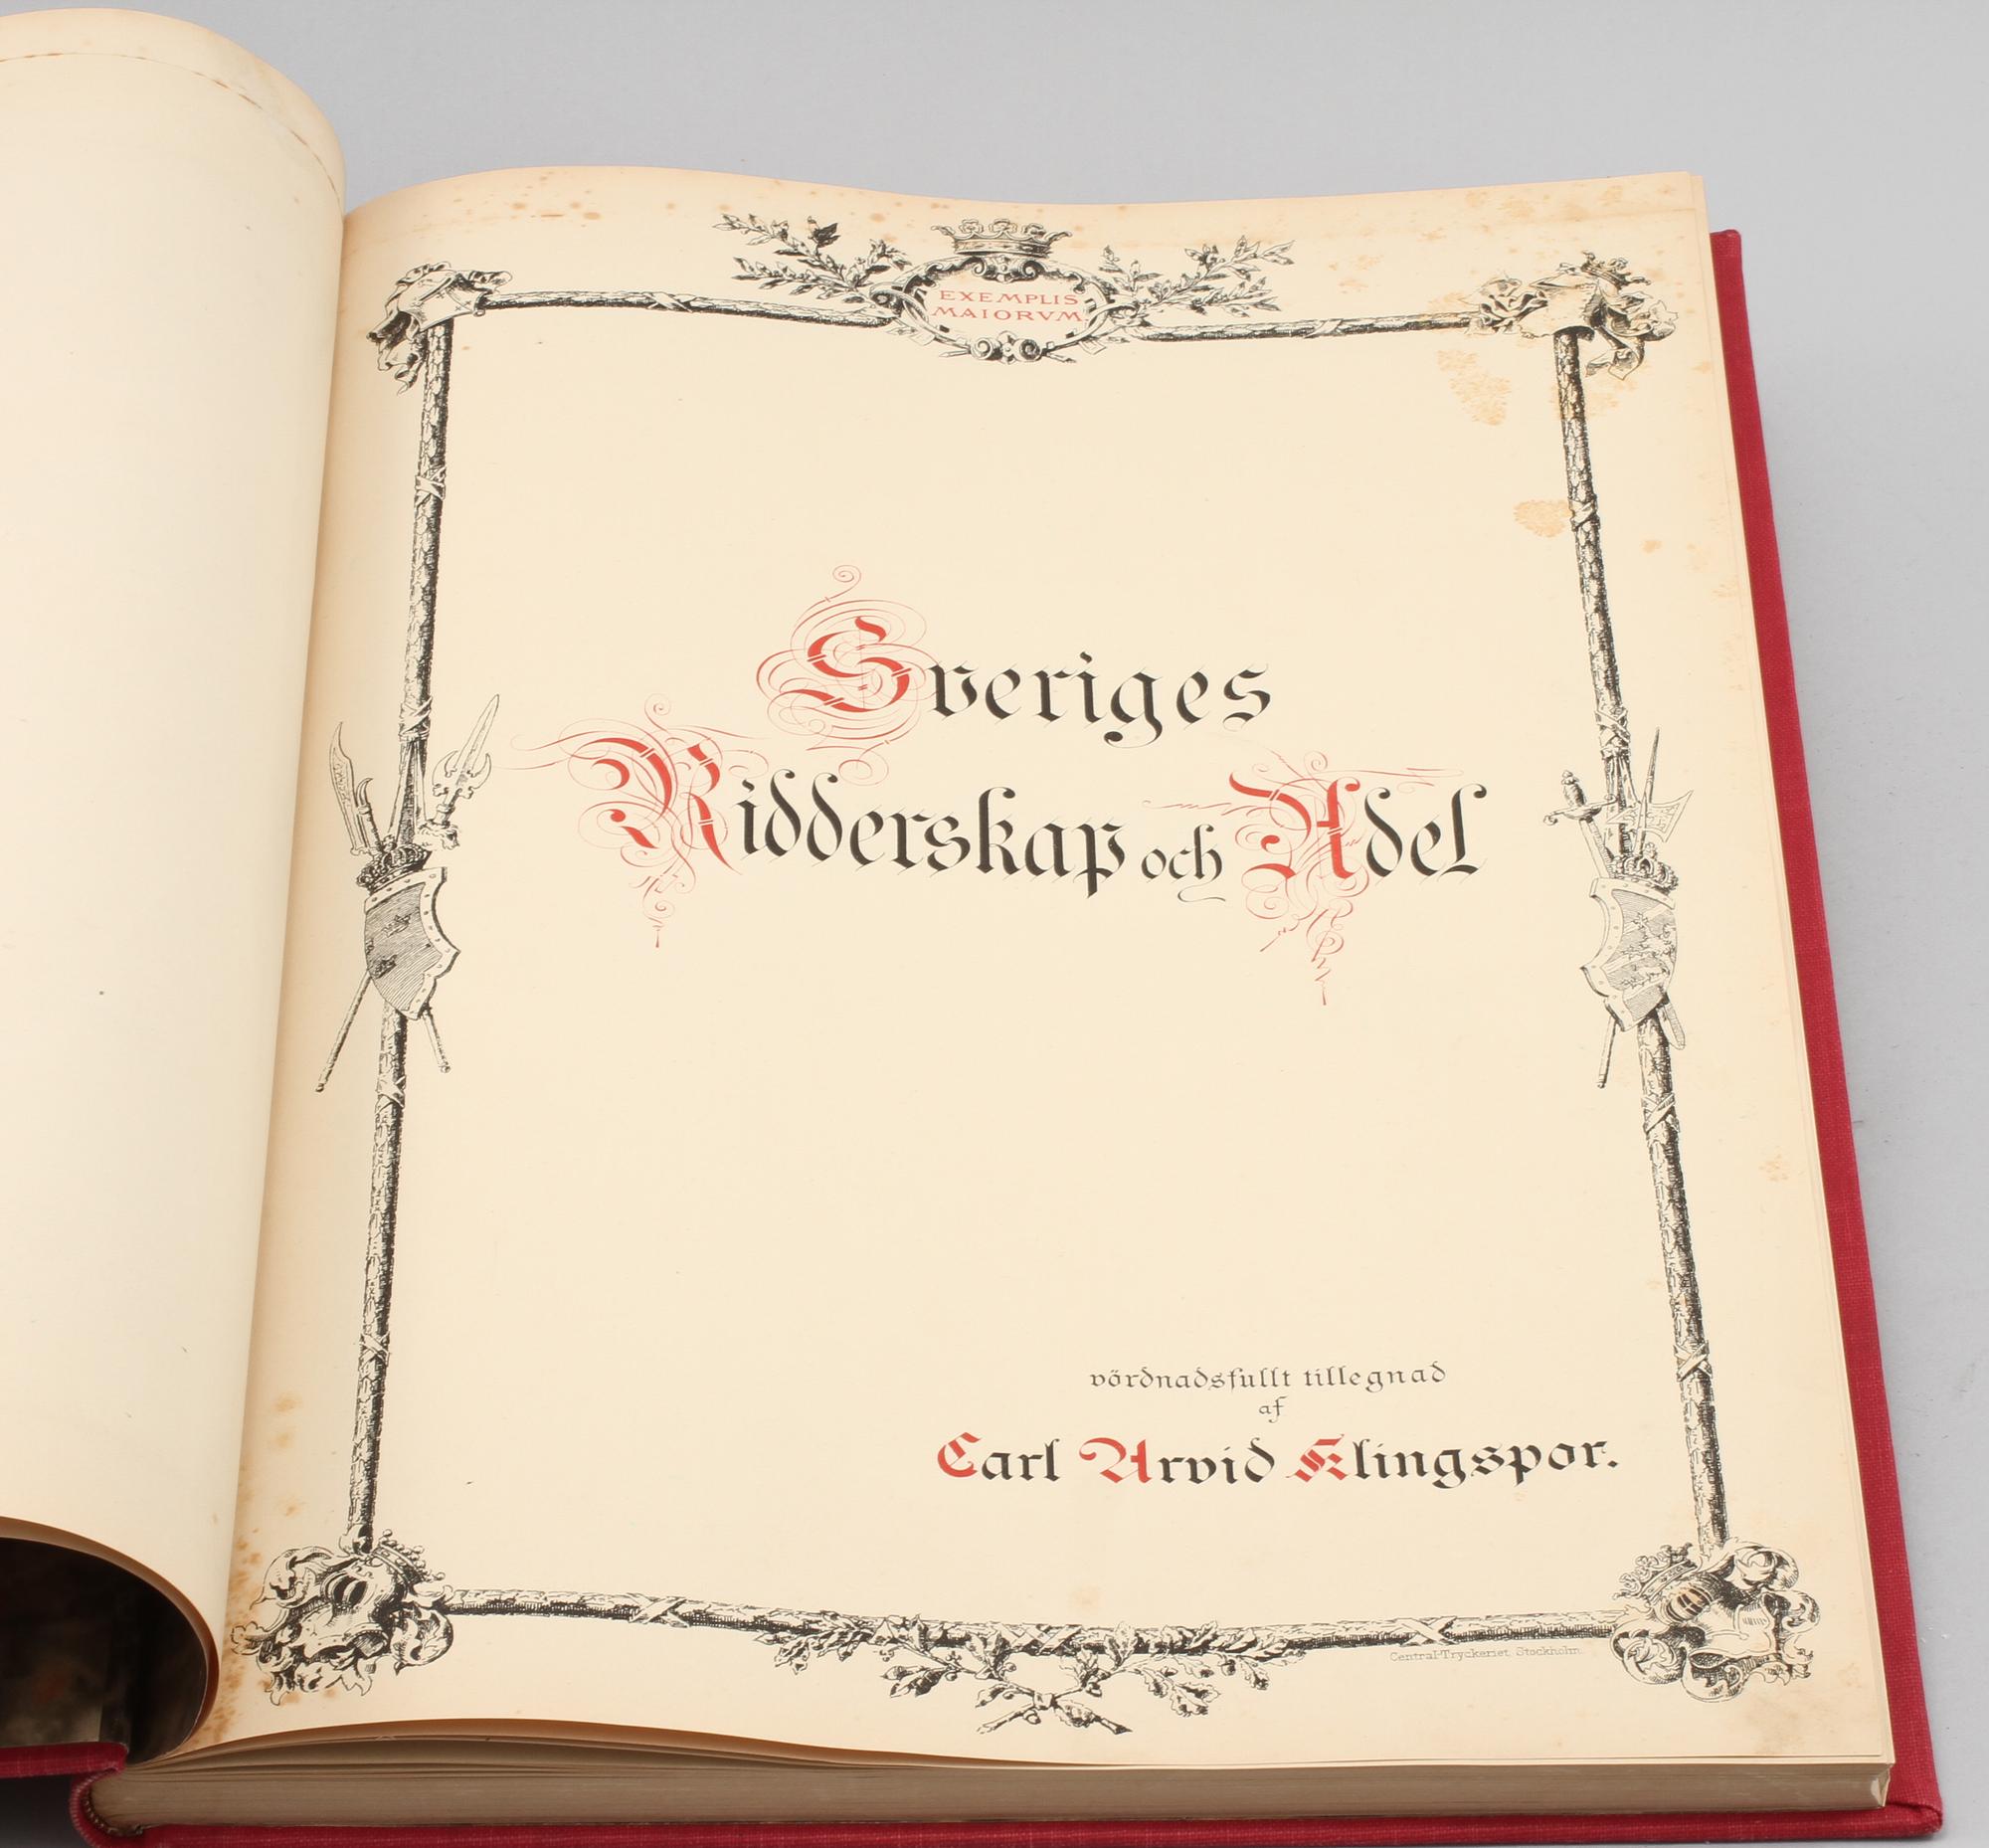 EXEMPLIS
MAIORVM
Sveriges
Ridderskap och Adel
vördnadsfullt tillegnad
af
Carl Arvid Klingspor.
Central-Tryckeriet, Stockholm.